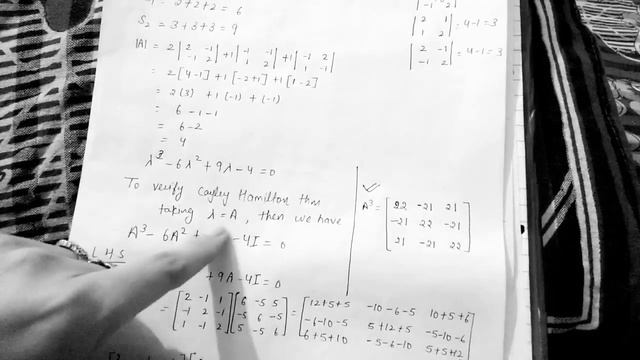 = 2+2+2 = 6
S₂ = 3+3+3 = 9
|A| = 2 |2 -1; -1 2| +1 |-1 -1; 1 2| +1 |-1 2; 1 -1|
= 2[4-1] +1[-2+1] +1[1-2]
= 2(3) +1(-1) +(-1)
= 6 -1 -1
= 6-2
= 4
λ³ -6λ² +9λ -4 = 0
To verify Cayley Hamilton thm
taking λ=A, then we have
A³ - 6A² + -4I = 0
LHS
+9A -4I = 0
= [2 -1 1; -1 2 -1; 1 -1 2] [6 -5 5; -5 6 -5; 5 -5 6] = [12+5+5 -10-6-5 10+5+6; -6-10-5 5+12+5 -5-10-6; 6+5+10 -5-6-10 5+5+12]
|2 1; 1 2| = 4-1=3
|2 -1; -1 2| = 4-1=3
A³ = [22 -21 21; -21 22 -21; 21 -21 22]